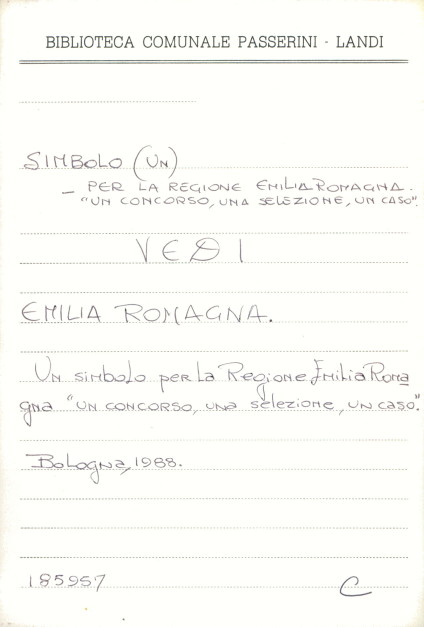 BIBLIOTECA COMUNALE PASSERINI - LANDI
SIMBOLO (UN)
- PER LA REGIONE EMILIA ROMAGNA.
"UN CONCORSO, UNA SELEZIONE, UN CASO".
VEDI
EMILIA ROMAGNA.
Un simbolo per la Regione Emilia Roma
gna "UN CONCORSO, una selezione, un caso".
Bologna, 1988.
185957
C